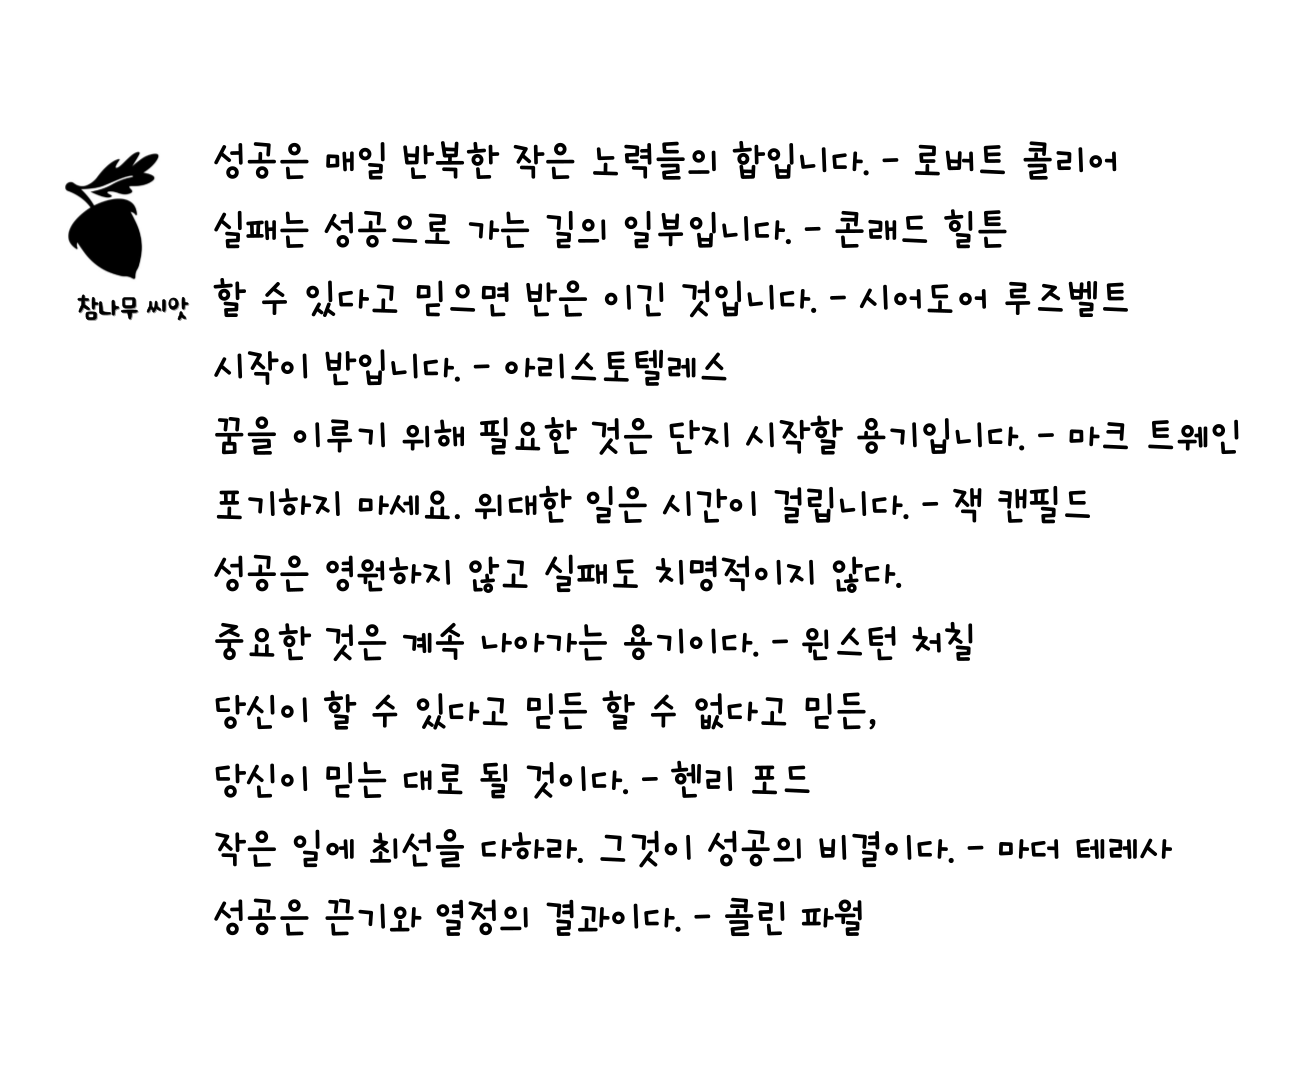 성공은 매일 반복한 작은 노력들의 합입니다. - 로버트 콜리어
실패는 성공으로 가는 길의 일부입니다. - 콘래드 힐튼
참나무 씨앗
할 수 있다고 믿으면 반은 이긴 것입니다. - 시어도어 루즈벨트
시작이 반입니다. - 아리스토텔레스
꿈을 이루기 위해 필요한 것은 단지 시작할 용기입니다. - 마크 트웨인
포기하지 마세요. 위대한 일은 시간이 걸립니다. - 잭 캔필드
성공은 영원하지 않고 실패도 치명적이지 않다.
중요한 것은 계속 나아가는 용기이다. - 윈스턴 처칠
당신이 할 수 있다고 믿든 할 수 없다고 믿든,
당신이 믿는 대로 될 것이다. - 헨리 포드
작은 일에 최선을 다하라. 그것이 성공의 비결이다. - 마더 테레사
성공은 끈기와 열정의 결과이다. - 콜린 파월